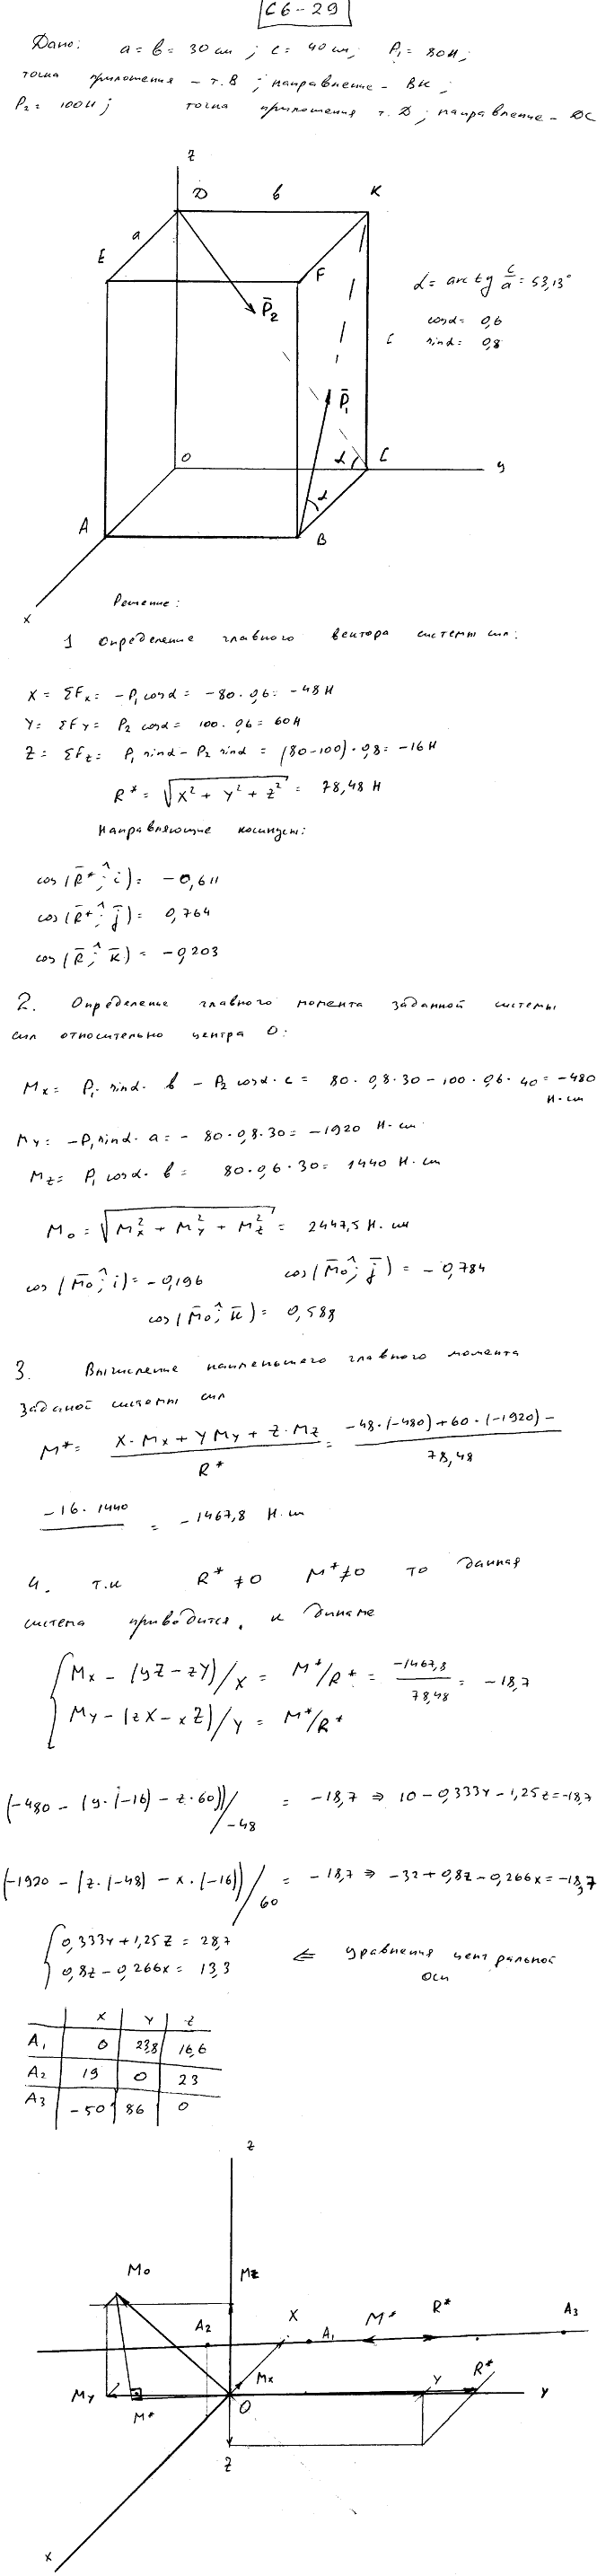 С6-29
Дано: a = b = 30 см ; c = 40 см; P₁ = 80Н;
точка приложения - т. B ; направление - BK ;
P₂ = 100Н ; точка приложения т. D ; направление - DC
z
D
b
K
a
E
F
P̄₂
α = arctg c/a = 53,13°
cosα = 0,6
c
sinα = 0,8
P̄₁
O
α
C
y
α
A
B
x
Решение:
1 Определение главного вектора системы сил:
X = ΣFx = -P₁ cosα = -80·0,6 = -48 Н
Y = ΣFy = P₂ cosα = 100·0,6 = 60Н
Z = ΣFz = P₁ sinα - P₂ sinα = (80-100)·0,8 = -16 Н
R* = √(X² + Y² + Z²) = 78,48 Н
Направляющие косинусы:
cos(R̄*^; i) = -0,611
cos(R̄*^; j̄) = 0,764
cos(R̄^; k̄) = -0,203
2. Определение главного момента заданной системы
сил относительно центра O:
Mx = P₁ sinα · b - P₂ cosα · c = 80·0,8·30 - 100·0,6·40 = -480
Н·см
My = -P₁ sinα · a = -80·0,8·30 = -1920 Н·см
Mz = P₁ cosα · b = 80·0,6·30 = 1440 Н·см
M₀ = √(Mx² + My² + Mz²) = 2447,5 Н·см
cos(M̄₀^; i) = -0,196 cos(M̄₀^; j̄) = -0,784
cos(M̄₀^; k̄) = 0,588
3. Вычисление наименьшего главного момента
заданой системы сил
M* = (X·Mx + Y My + Z·Mz)/R* = (-48·(-480) + 60·(-1920) -
/78,48
-16·1440 = -1467,8 Н·см
4. т.к R* ≠ 0 M* ≠ 0 то данная
система приводится к динаме
{ Mx - (yZ - zY)/X = M*/R* = -1467,8/78,48 = -18,7
My - (zX - xZ)/Y = M*/R*
(-480 - (y·(-16) - z·60))/-48 = -18,7 ⇒ 10 - 0,333y - 1,25z = -18,7
(-1920 - (z·(-48) - x·(-16))/60 = -18,7 ⇒ -32 + 0,8z - 0,266x = -18,7
{ 0,333y + 1,25z = 28,7
0,8z - 0,266x = 13,3
⇐ уравнения центральной
оси
x y z
A₁ 0 23,8 16,6
A₂ 19 0 23
A₃ -50 86 0
z
M₀
Mz
A₂
X
A₁
M*
R*
A₃
Mx
My
M*
O
Y
R*
y
Z
x